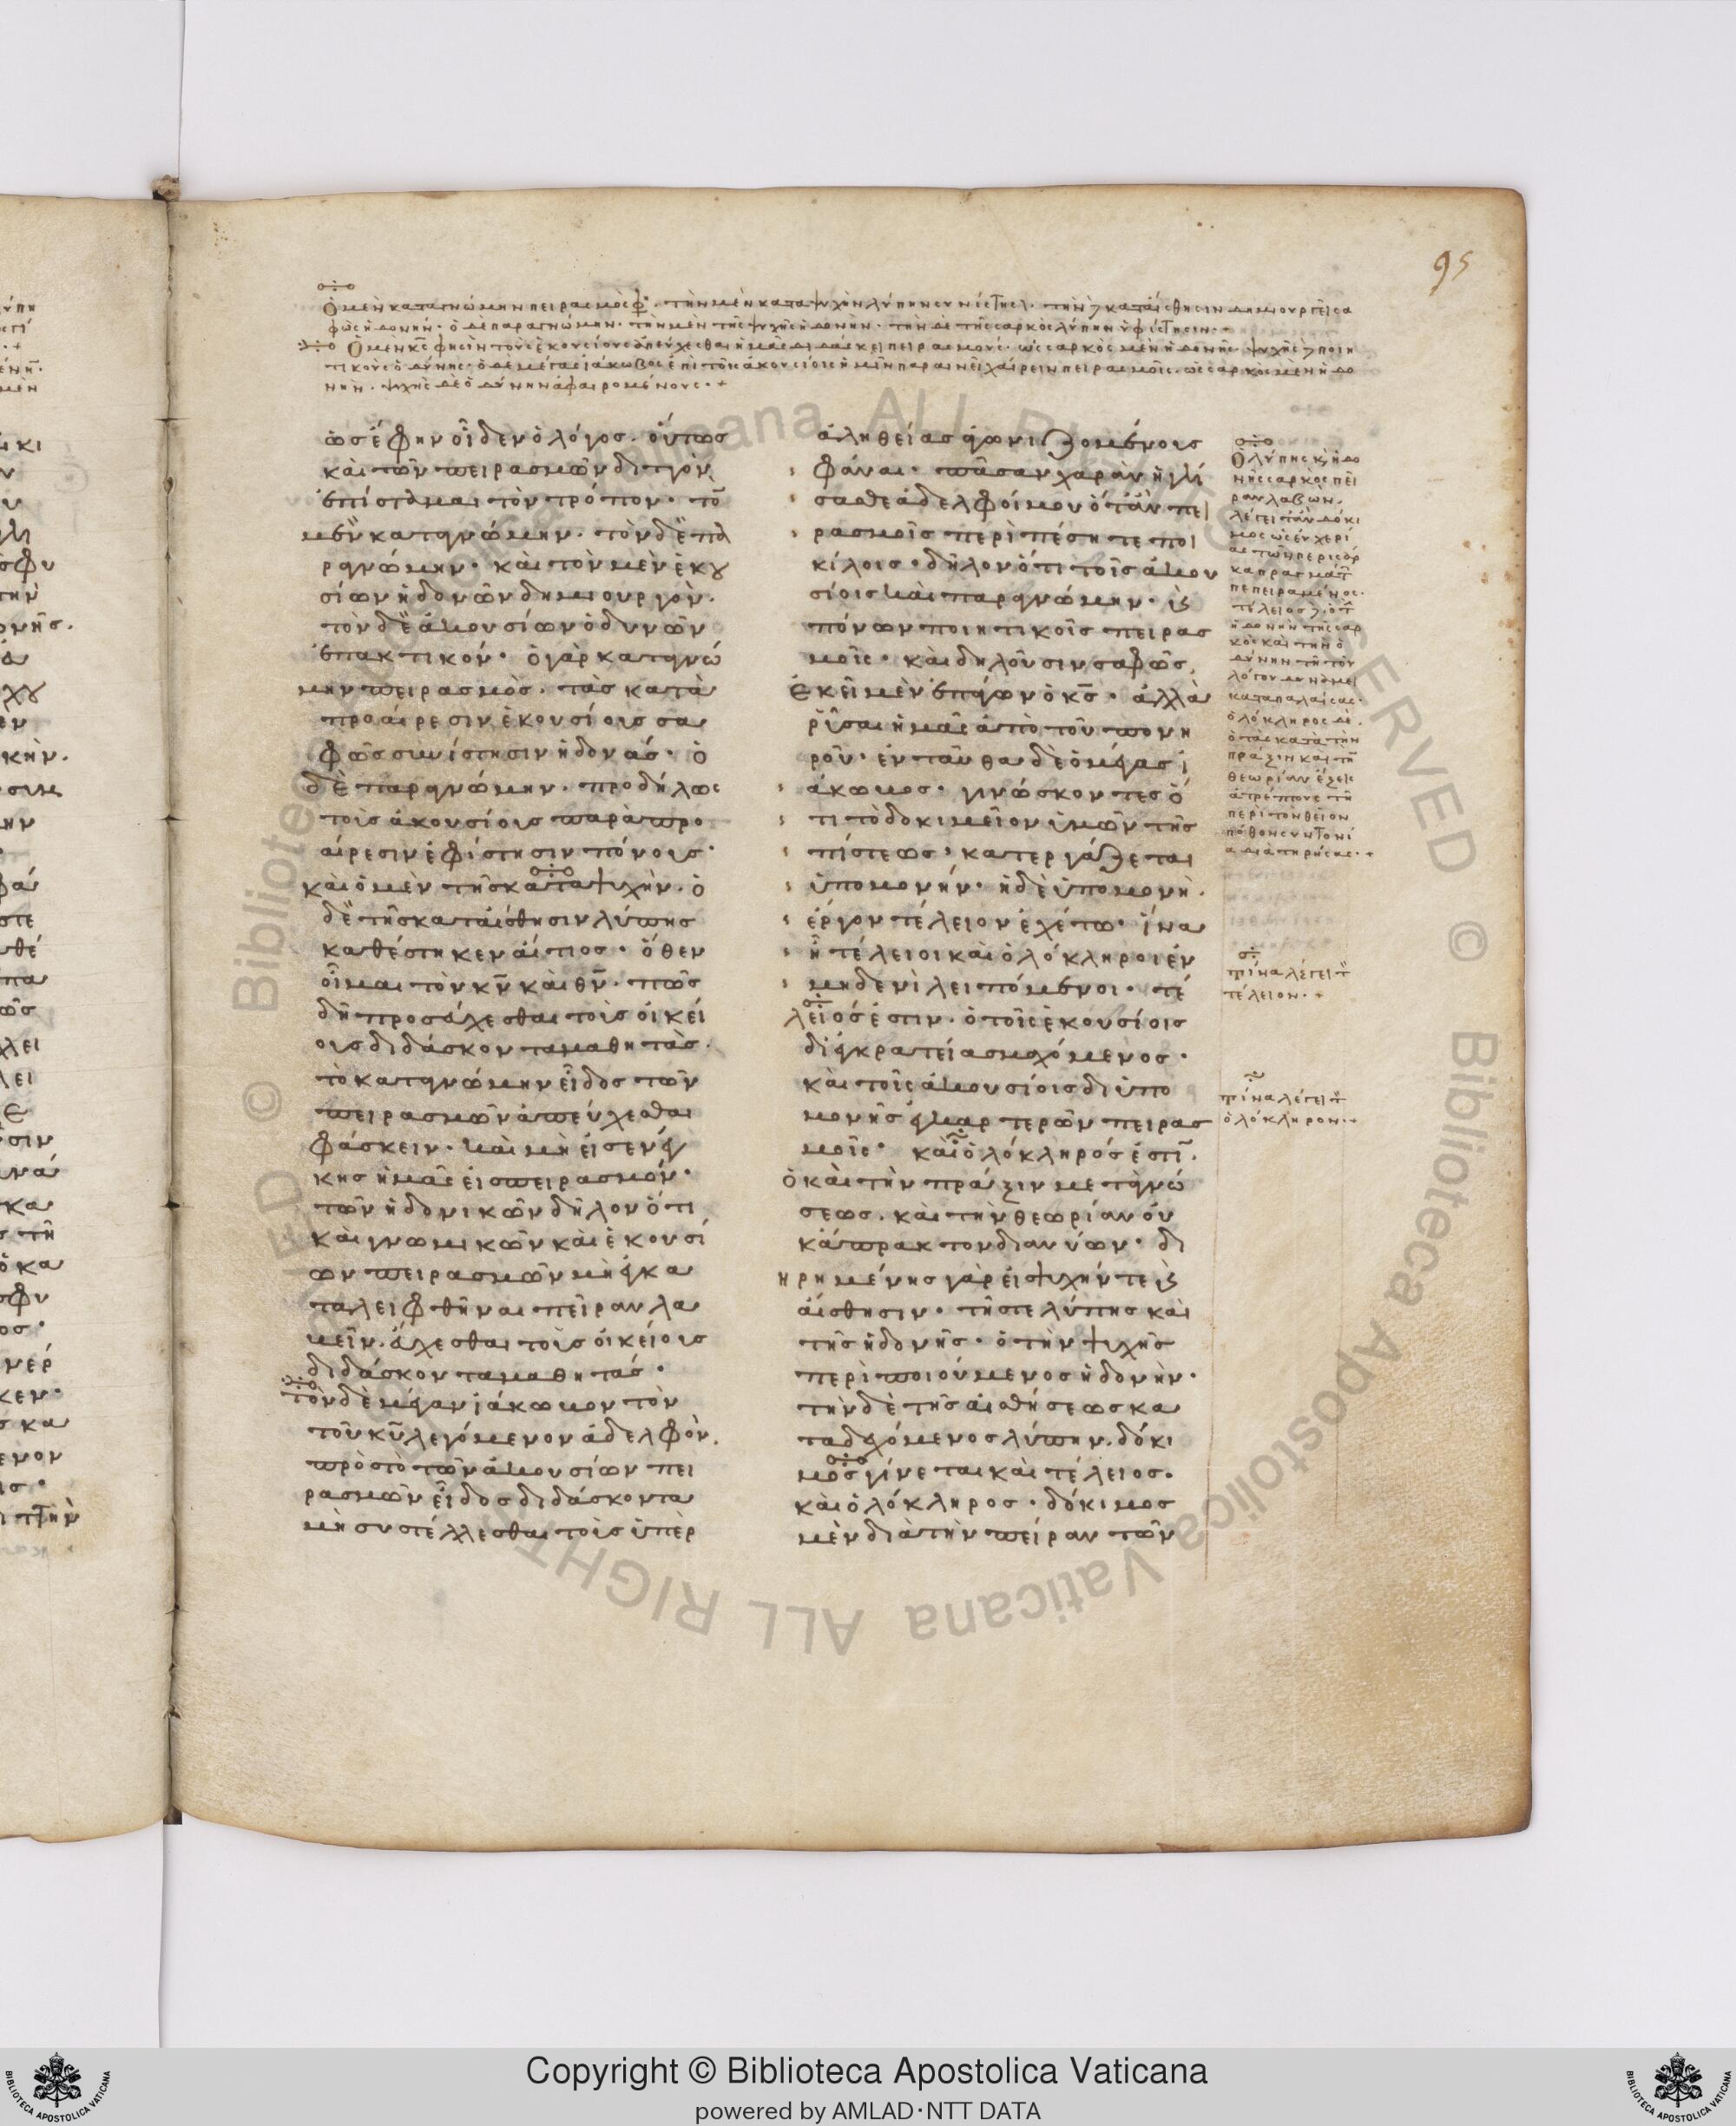 95
Ὁ μὲν κατὰ γνώμην πειρασμὸς φ. τὴν μὲν κατὰ ψυχὴν λύπην συνίστησι. τὴν δὲ κατ' αἴσθησιν δημιουργεῖ σα
φῶς ἡδονήν· ὁ δὲ παρὰ γνώμην· τὴν μὲν τῆς ψυχῆς ἡδονὴν· τὴν δὲ τῆς σαρκὸς λύπην ὑφίστησιν·+
Ὁ μὲν κς φησὶν τοὺς ἑκουσίους ἀπεύχεσθαι ἡμᾶς διδάσκει πειρασμούς· ὡς σαρκὸς μὲν ἡδονῆς· ψυχῆς δὲ ποιη
τικοὺς ὀδύνης· ὁ δὲ μέγας ἰάκωβος ἐπὶ τοῖς ἀκουσίοις ἡμῖν παραινεῖ χαίρειν πειρασμοῖς· ὡς σαρκὸς μὲν ἡδο
νὴν· ψυχῆς δὲ ὀδύνην ἀφαιρομένους·+
ὡς ἔφην οἶδεν ὁ λόγος· οὕτως
καὶ τῶν πειρασμῶν διττὸν
ἐπίσταμαι τὸν τρόπον· τὸ
μὲν κατὰ γνώμην· τὸν δὲ πα
ρὰ γνώμην· καὶ τὸν μὲν ἑκου
σίων ἡδονῶν δημιουργὸν·
τὸν δὲ ἀκουσίων ὀδυνῶν
ἐπακτικόν· ὁ γὰρ κατὰ γνώ
μην πειρασμὸς· τὰς κατὰ
προαίρεσιν ἑκουσίους σα
φῶς συνίστησιν ἡδονάς· ὁ
δὲ παρὰ γνώμην· προδήλως
τοὺς ἀκουσίους παρὰ προ
αίρεσιν ἐφίστησιν πόνους·
καὶ ὁ μὲν τῆς κατὰ ψυχὴν· ὁ
δὲ τῆς κατ' αἴσθησιν λύπης
καθέστηκεν αἴτιος· ὅθεν
οἶμαι τὸν κν καὶ θν· πῶς
δεῖ προσεύχεσθαι τοὺς οἰκεί
ους διδάσκοντα μαθητὰς·
τὸ κατὰ γνώμην εἶδος τῶν
πειρασμῶν ἀπεύχεσθαι
φάσκειν· καὶ μὴ εἰσενέγ
κῃς ἡμᾶς εἰς πειρασμόν·
τῶν ἡδονικῶν δῆλον ὅτι
καὶ γνωμικῶν καὶ ἑκουσί
ων πειρασμῶν μὴ ἐγκα
ταλειφθῆναι πεῖραν λα
βεῖν· εὔχεσθαι τοὺς οἰκείους
διδάσκοντα μαθητάς·
τὸν δὲ μέγαν ἰάκωβον τὸν
τοῦ κυ λεγόμενον ἀδελφὸν,
πρὸς τὸ τῶν ἀκουσίων πει
ρασμῶν εἶδος διδάσκοντα
μὴ συστέλλεσθαι τοὺς ὑπὲρ
ἀληθείας ἀγωνιζομένους
φάναι· πᾶσαν χαρὰν ἡγή
σασθε ἀδελφοί μου ὅταν πει
ρασμοῖς περιπέσητε ποι
κίλοις· δῆλον ὅτι τοῖς ἀκου
σίοις καὶ παρὰ γνώμην· καὶ
πόνων ποιητικοῖς πειρασ
μοῖς· καὶ δηλοῦσιν σαφῶς,
ἐκεῖ μὲν ἐπάγων ὁ κς· ἀλλὰ
ῥῦσαι ἡμᾶς ἀπὸ τοῦ πονη
ροῦ· ἐνταῦθα δὲ ὁ μέγας ἰ
άκωβος· γινώσκοντες ὅ
τι τὸ δοκιμεῖον ὑμῶν τῆς
πίστεως· κατεργάζεται
ὑπομονήν· ἡ δὲ ὑπομονὴ·
ἔργον τέλειον ἐχέτω· ἵνα
ἦτε τέλειοι καὶ ὁλόκληροι ἐν
μηδενὶ λειπόμενοι· τέ
λειός ἐστιν· ὁ τοῖς ἑκουσίοις
δι' ἐγκρατείας μαχόμενος·
καὶ τοῖς ἀκουσίοις δι' ὑπο
μονῆς ἐγκαρτερῶν πειρασ
μοῖς· καὶ ὁλόκληρός ἐστι·
ὁ καὶ τὴν πρᾶξιν μετὰ γνώ
σεως· καὶ τὴν θεωρίαν οὐ
κ ἄπρακτον διανύων· δι
ῃρημένης γὰρ εἰς ψυχήν τε καὶ
αἴσθησιν· τῆς τε λύπης καὶ
τῆς ἡδονῆς· ὁ τὴν ψυχῆς
περιποιούμενος ἡδονὴν·
τὴν δὲ τῆς αἰσθήσεως κα
ταδεχόμενος λύπην· δόκι
μος γίνεται καὶ τέλειος·
καὶ ὁλόκληρος· δόκιμος
μὲν διὰ τὴν πεῖραν τῶν
Ὁ λύπης καὶ ἡδο
νῆς σαρκὸς πεῖ
ραν λαβὼν,
λέγεται ἂν δόκι
μος ὡς ἐν χερί
κα πραγμάτ
πεπειραμένος·
τέλειος δὲ ὁ τ
ἡδονὴν τῆς σαρ
κὸς καὶ τὴν ὀ
δύνην τῇ τοῦ
καταπαλαίσας·
ὁλόκληρος δὲ,
ὁ τὰς κατὰ τὴν
πρᾶξιν καὶ τὴν
θεωρίαν ἕξεις
ἀτρέπτους τῇ
περὶ τὸν θεῖον
πόθον συντονί
α διατηρήσας·+
τίνα λέγει τ
τέλειον·+
τίνα λέγει τ
ὁλόκληρον·+
Copyright © Biblioteca Apostolica Vaticana
powered by AMLAD·NTT DATA